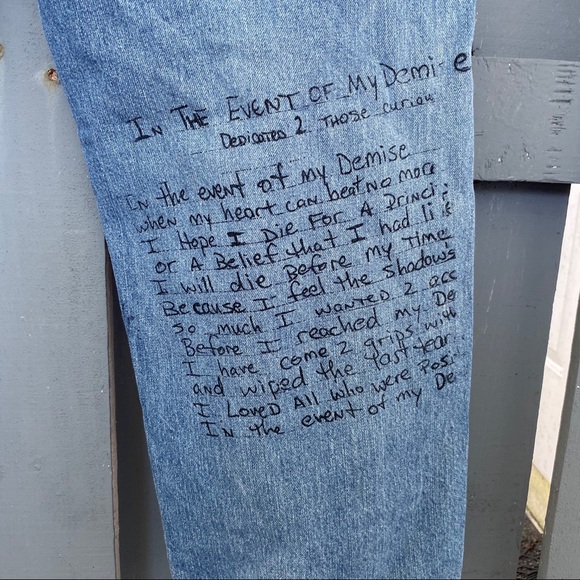 IN THE EVENT OF MY Demi e
DEDICATED 2 THOSE curiou
IN the event of my Demise
when my heart can beat no more
I Hope I Die For A Princi
or A Belief that I had li
I will die Before my Time
Because I feel the shadows
so much I wanted 2 acc
Before I reached my De
I have come 2 grips with
and wiped the last tear
I Loved All who were Posi
In the event of my De